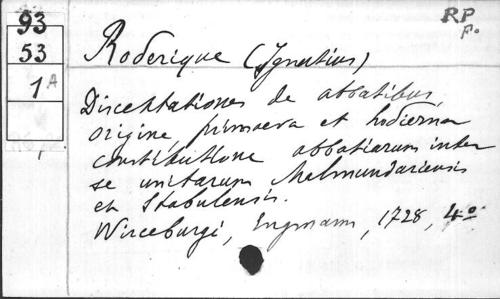 93
53
1 A
RP
F°.
Roderique (Ignatius)
Disceptationes de abbatibus
origine, primaeva et hodierna
constitutione abbatiarum inter
se unitarum Malmundariensis
et Stabulensis.
Wirceburgi, Engmann, 1728, 4°